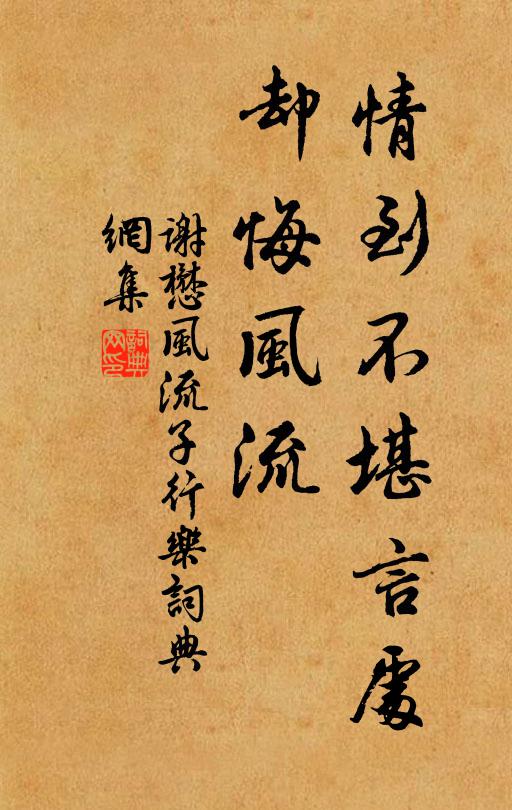 情到不堪言處
却悔風流
謝懋風流子行樂詞典
網集
詞典
网印